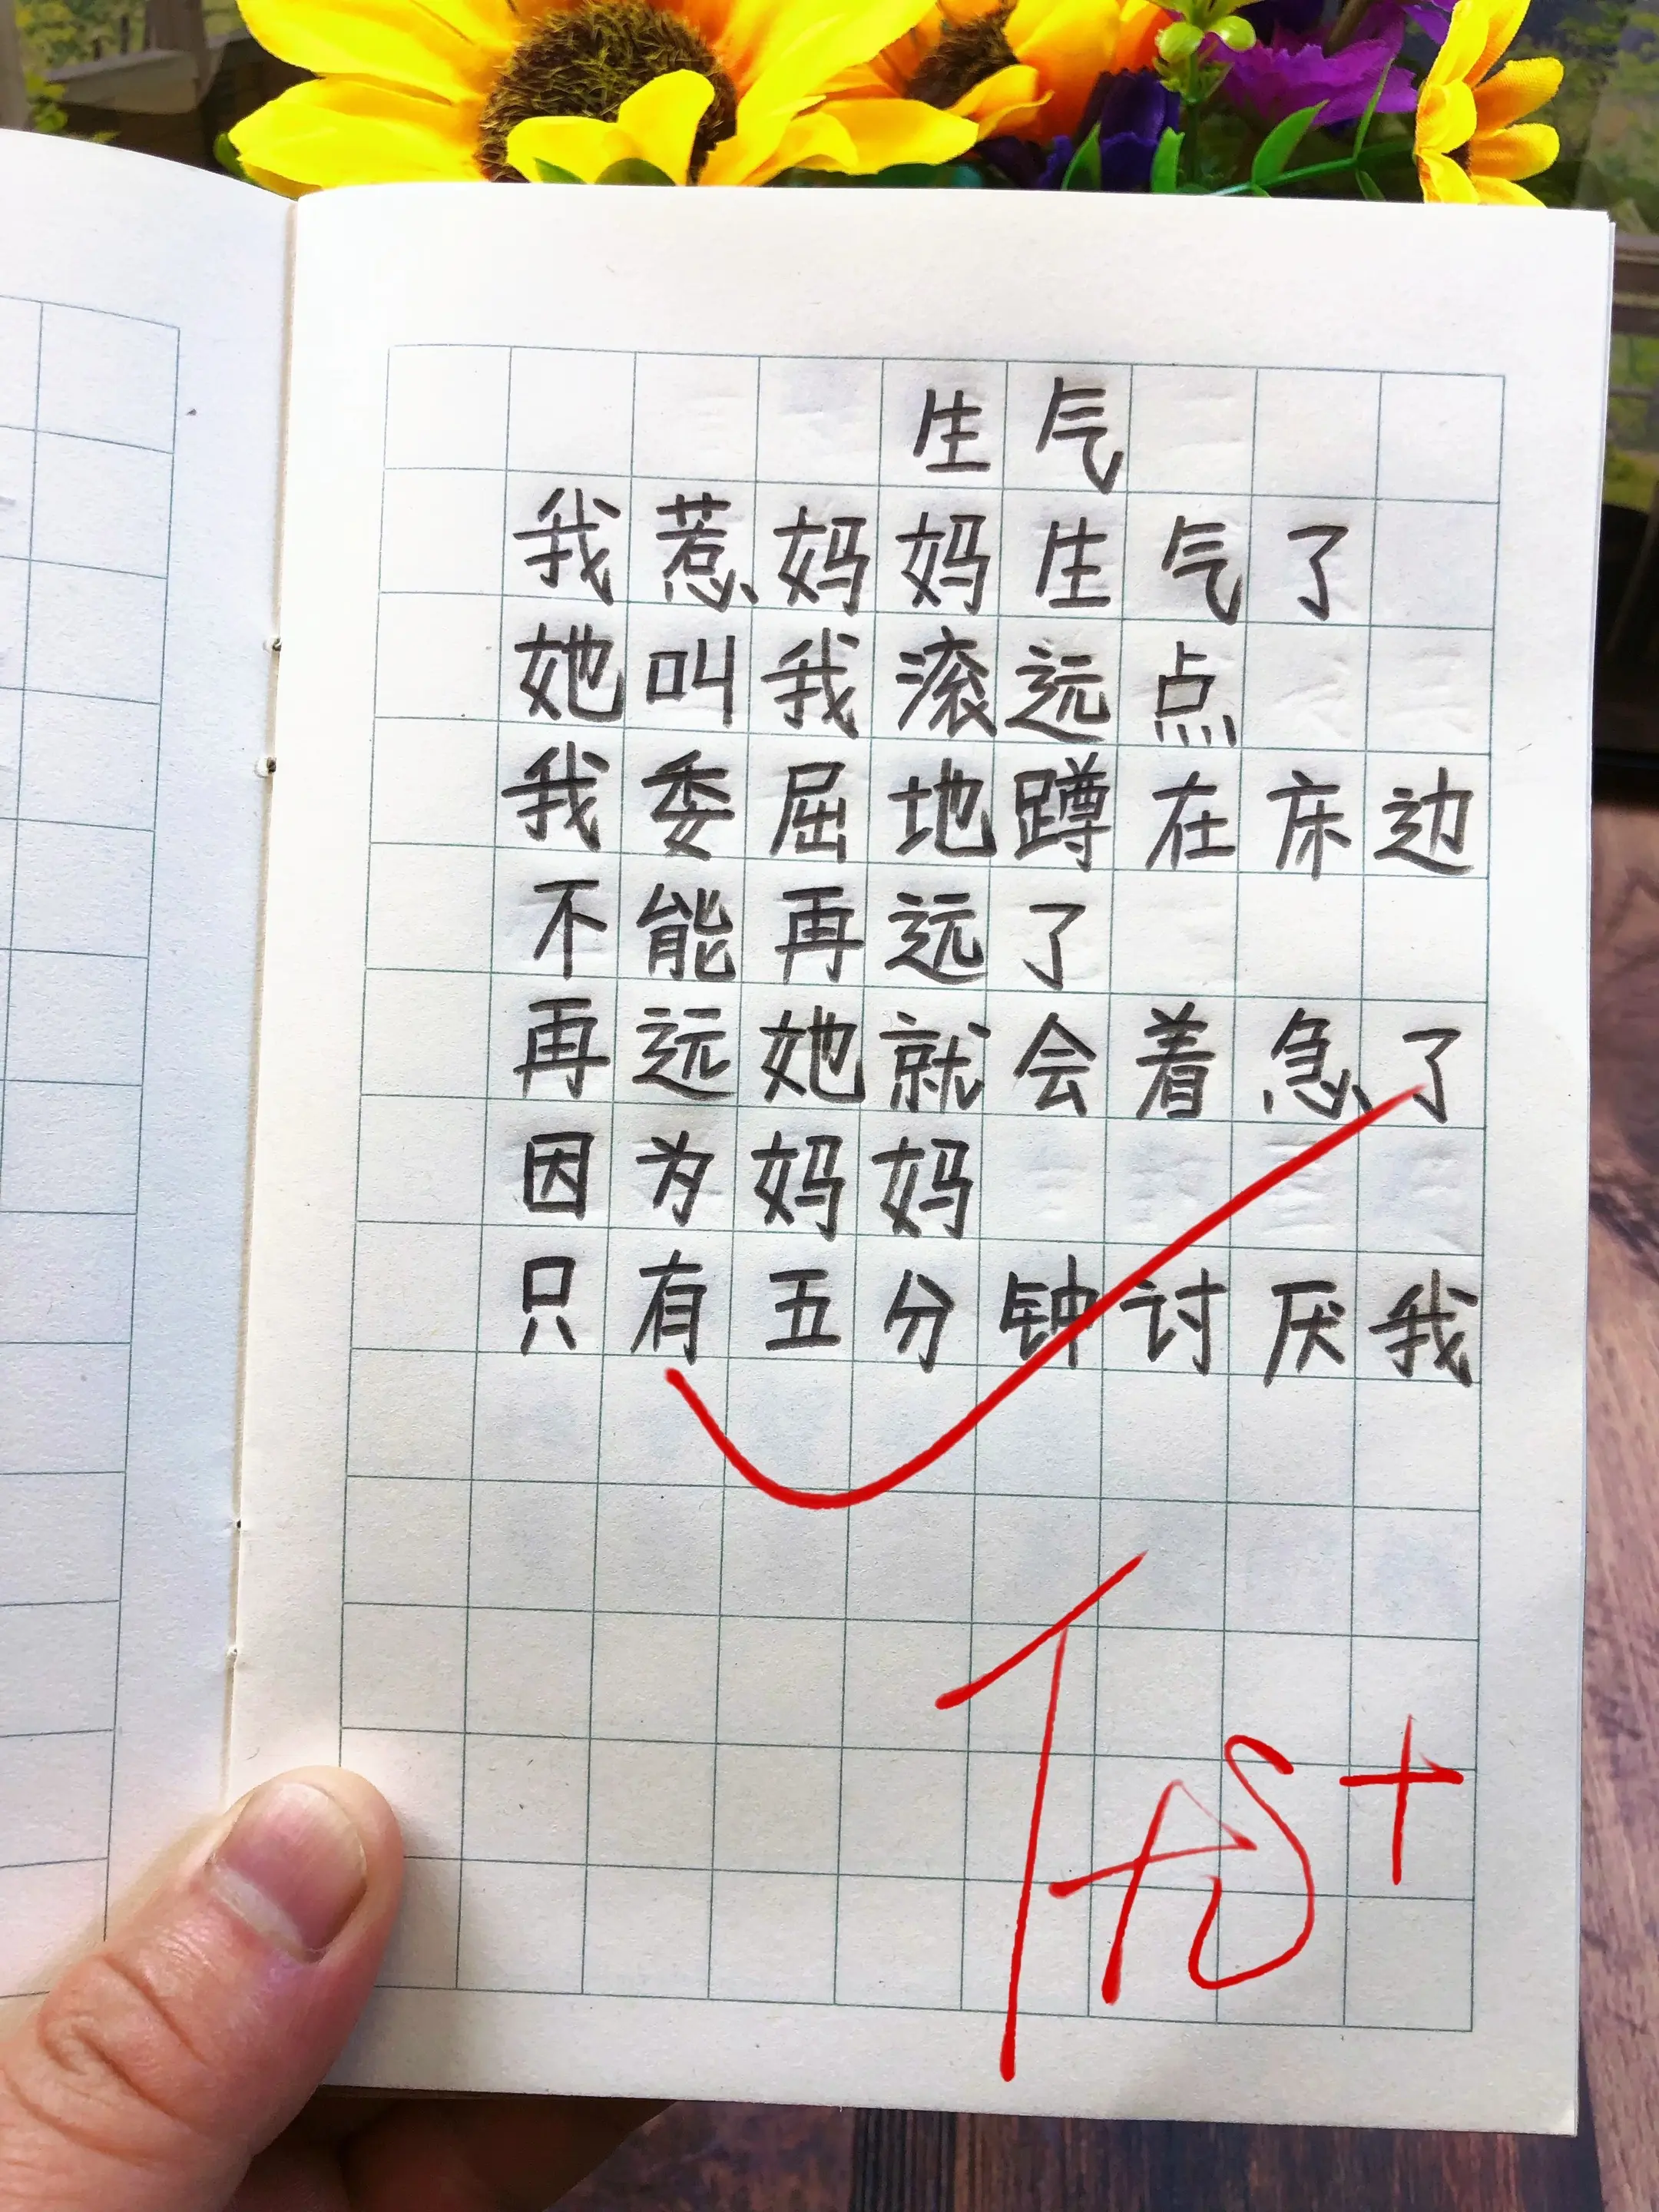 生气
我惹妈妈生气了
她叫我滚远点
我委屈地蹲在床边
不能再远了
再远她就会着急了
因为妈妈
只有五分钟讨厌我